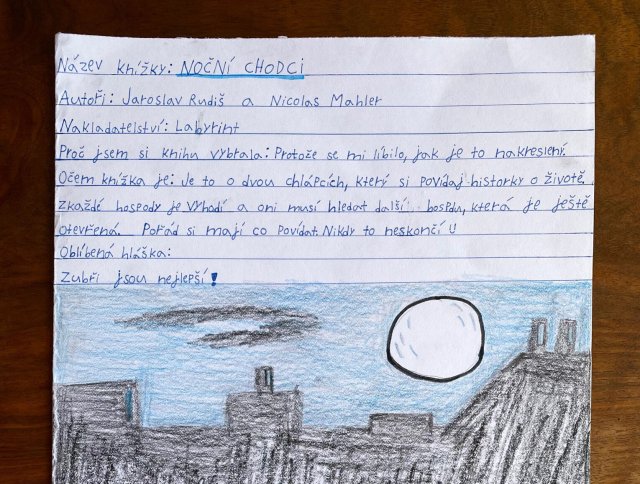 Název knížky: NOČNÍ CHODCI
Autoři: Jaroslav Rudiš a Nicolas Mahler
Nakladatelství: Labyrint
Proč jsem si knihu vybrala: Protože se mi líbilo, jak je to nakreslení.
Očem knížka je: Je to o dvou chlápcích, který si povídaj historky o životě.
Zkaždé hospody je vyhodí a oni musí hledat další hospdu, která je ještě
otevřená. Pořád si mají co povídat. Nikdy to neskončí!!
Oblíbená hláška:
Zubři jsou nejlepší!